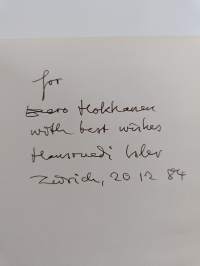 for
Eero Hokkanen
with best wishes
Hansruedi Isler
Zürich, 20 12 84